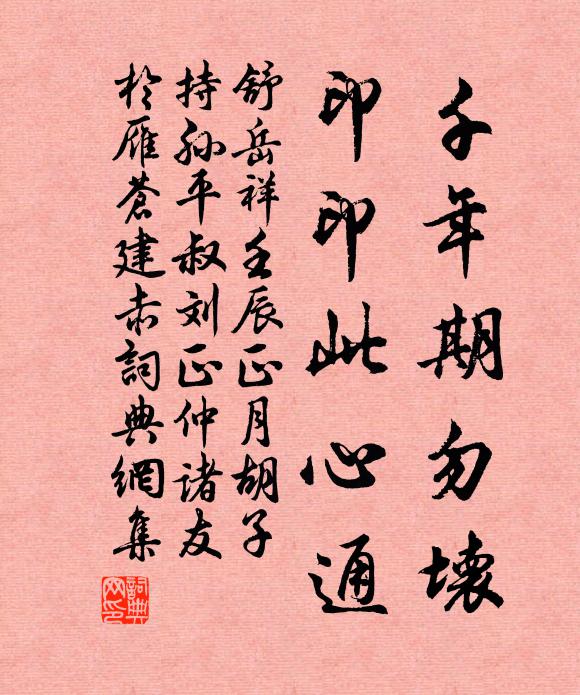 千年期勿壞
印印此心通
舒岳祥壬辰正月胡子
持孙平叔刘正仲诸友
於雁蒼建赤詞典網集
詞典网印